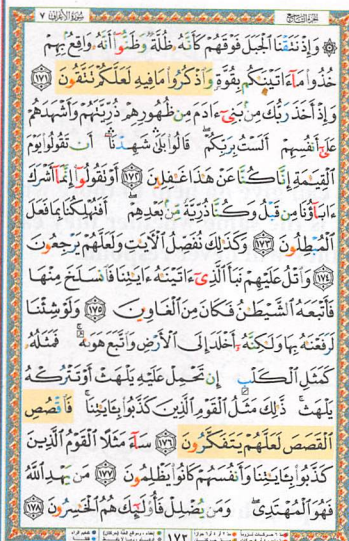 سُورَةُ الأَعْرَافِ ٧ الجُزْءُ التَّاسِعُ
۞ وَإِذْ نَتَقْنَا ٱلْجَبَلَ فَوْقَهُمْ كَأَنَّهُۥ ظُلَّةٌ وَظَنُّوٓا۟ أَنَّهُۥ وَاقِعٌۢ بِهِمْ
خُذُوا۟ مَآ ءَاتَيْنَٰكُم بِقُوَّةٍ وَٱذْكُرُوا۟ مَا فِيهِ لَعَلَّكُمْ تَتَّقُونَ ١٧١
وَإِذْ أَخَذَ رَبُّكَ مِنۢ بَنِىٓ ءَادَمَ مِن ظُهُورِهِمْ ذُرِّيَّتَهُمْ وَأَشْهَدَهُمْ
عَلَىٰٓ أَنفُسِهِمْ أَلَسْتُ بِرَبِّكُمْ ۖ قَالُوا۟ بَلَىٰ ۛ شَهِدْنَآ ۛ أَن تَقُولُوا۟ يَوْمَ
ٱلْقِيَٰمَةِ إِنَّا كُنَّا عَنْ هَٰذَا غَٰفِلِينَ ١٧٢ أَوْ تَقُولُوٓا۟ إِنَّمَآ أَشْرَكَ
ءَابَآؤُنَا مِن قَبْلُ وَكُنَّا ذُرِّيَّةً مِّنۢ بَعْدِهِمْ ۖ أَفَتُهْلِكُنَا بِمَا فَعَلَ
ٱلْمُبْطِلُونَ ١٧٣ وَكَذَٰلِكَ نُفَصِّلُ ٱلْءَايَٰتِ وَلَعَلَّهُمْ يَرْجِعُونَ
١٧٤ وَٱتْلُ عَلَيْهِمْ نَبَأَ ٱلَّذِىٓ ءَاتَيْنَٰهُ ءَايَٰتِنَا فَٱنسَلَخَ مِنْهَا
فَأَتْبَعَهُ ٱلشَّيْطَٰنُ فَكَانَ مِنَ ٱلْغَاوِينَ ١٧٥ وَلَوْ شِئْنَا
لَرَفَعْنَٰهُ بِهَا وَلَٰكِنَّهُۥٓ أَخْلَدَ إِلَى ٱلْأَرْضِ وَٱتَّبَعَ هَوَىٰهُ ۚ فَمَثَلُهُۥ
كَمَثَلِ ٱلْكَلْبِ إِن تَحْمِلْ عَلَيْهِ يَلْهَثْ أَوْ تَتْرُكْهُ
يَلْهَث ۚ ذَّٰلِكَ مَثَلُ ٱلْقَوْمِ ٱلَّذِينَ كَذَّبُوا۟ بِـَٔايَٰتِنَا ۚ فَٱقْصُصِ
ٱلْقَصَصَ لَعَلَّهُمْ يَتَفَكَّرُونَ ١٧٦ سَآءَ مَثَلًا ٱلْقَوْمُ ٱلَّذِينَ
كَذَّبُوا۟ بِـَٔايَٰتِنَا وَأَنفُسَهُمْ كَانُوا۟ يَظْلِمُونَ ١٧٧ مَن يَهْدِ ٱللَّهُ
فَهُوَ ٱلْمُهْتَدِى ۖ وَمَن يُضْلِلْ فَأُو۟لَٰٓئِكَ هُمُ ٱلْخَٰسِرُونَ ١٧٨
١٧٣